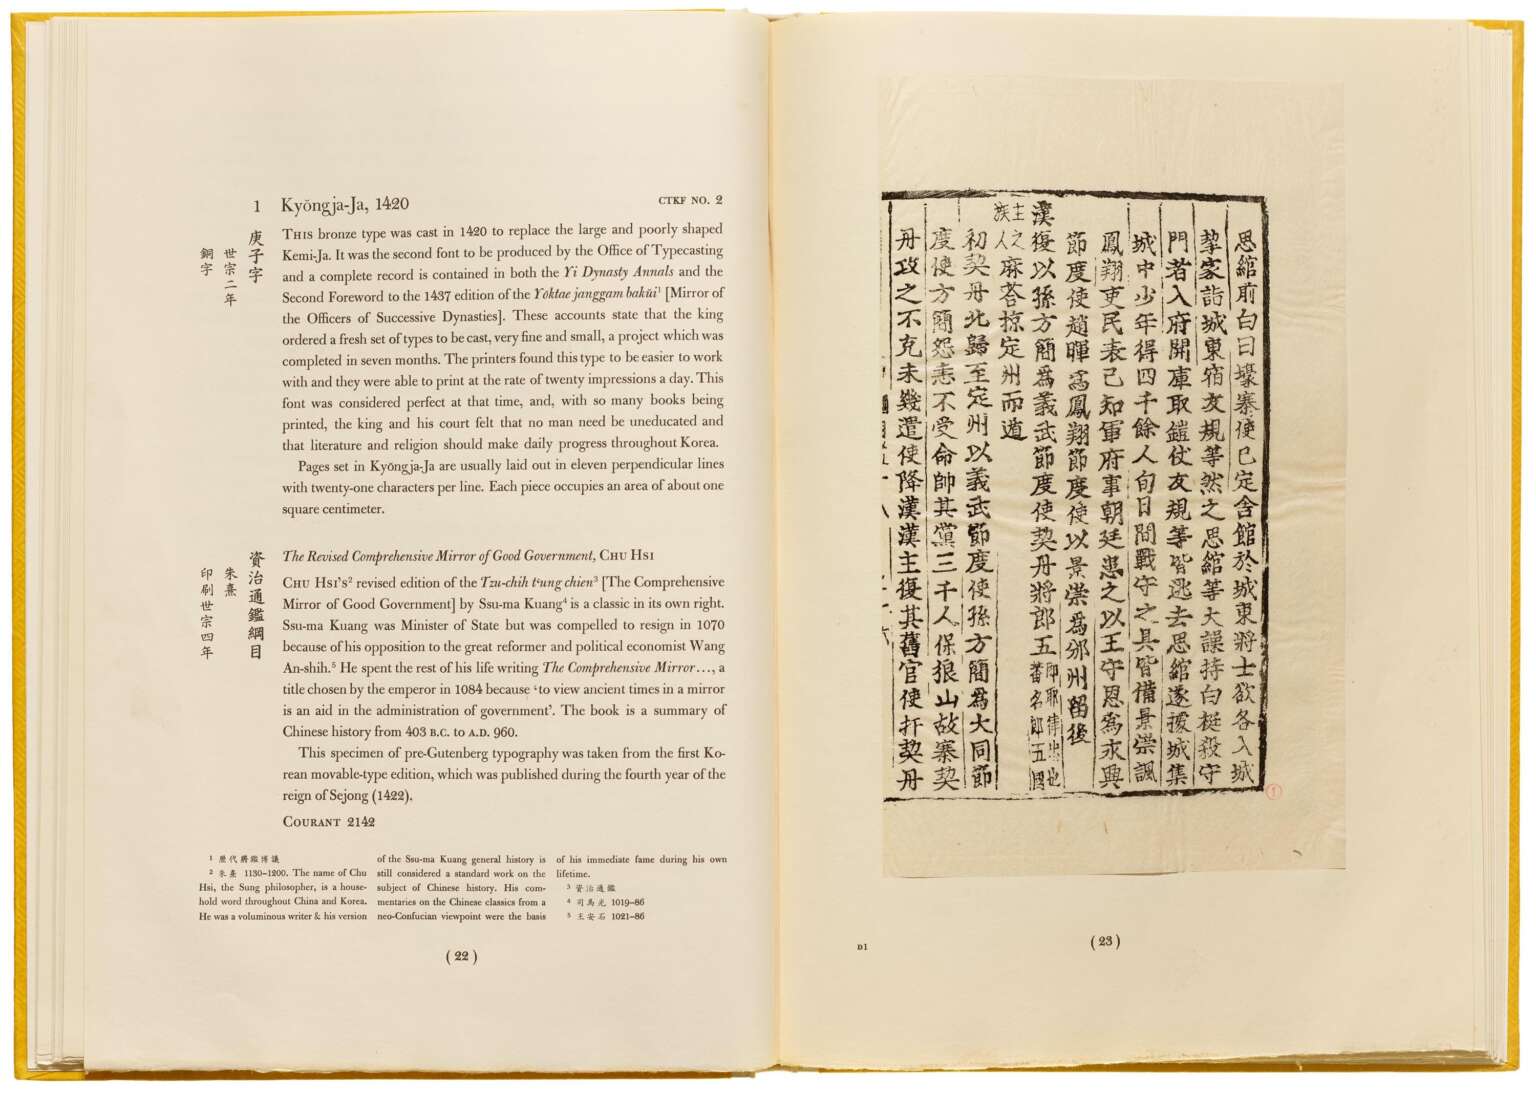 1 Kyŏngja-Ja, 1420
CTKF NO. 2
庚子字
世宗二年
銅字
THIS bronze type was cast in 1420 to replace the large and poorly shaped
Kemi-Ja. It was the second font to be produced by the Office of Typecasting
and a complete record is contained in both the Yi Dynasty Annals and the
Second Foreword to the 1437 edition of the Yŏktae janggam bakŭi¹ [Mirror of
the Officers of Successive Dynasties]. These accounts state that the king
ordered a fresh set of types to be cast, very fine and small, a project which was
completed in seven months. The printers found this type to be easier to work
with and they were able to print at the rate of twenty impressions a day. This
font was considered perfect at that time, and, with so many books being
printed, the king and his court felt that no man need be uneducated and
that literature and religion should make daily progress throughout Korea.
Pages set in Kyŏngja-Ja are usually laid out in eleven perpendicular lines
with twenty-one characters per line. Each piece occupies an area of about one
square centimeter.
資治通鑑綱目
朱熹
印刷世宗四年
The Revised Comprehensive Mirror of Good Government, CHU HSI
CHU HSI'S² revised edition of the Tzu-chih t‘ung chien³ [The Comprehensive
Mirror of Good Government] by Ssu-ma Kuang⁴ is a classic in its own right.
Ssu-ma Kuang was Minister of State but was compelled to resign in 1070
because of his opposition to the great reformer and political economist Wang
An-shih.⁵ He spent the rest of his life writing The Comprehensive Mirror..., a
title chosen by the emperor in 1084 because ‘to view ancient times in a mirror
is an aid in the administration of government’. The book is a summary of
Chinese history from 403 B.C. to A.D. 960.
This specimen of pre-Gutenberg typography was taken from the first Ko-
rean movable-type edition, which was published during the fourth year of the
reign of Sejong (1422).
COURANT 2142
¹ 歷代將鑑博議
² 朱熹 1130–1200. The name of Chu
Hsi, the Sung philosopher, is a house-
hold word throughout China and Korea.
He was a voluminous writer & his version
of the Ssu-ma Kuang general history is
still considered a standard work on the
subject of Chinese history. His com-
mentaries on the Chinese classics from a
neo-Confucian viewpoint were the basis
of his immediate fame during his own
lifetime.
³ 資治通鑑
⁴ 司馬光 1019–86
⁵ 王安石 1021–86
(22)
思綰前白曰壕寨使已定舍館於城東將士欲各入城
挈家詣城東宿友規等然之思綰等大譟持白梃殺守
門者入府開庫取鎧仗友規等皆逃去思綰遂據城集
城中少年得四千餘人旬日間戰守之具皆備景崇諷
鳳翔吏民表己知軍府事朝廷患之以王守恩為永興
節度使趙暉為鳳翔節度使以景崇為邠州留後
漢復以孫方簡為義武節度使契丹將郎五即耶律忠也番名郎五國
主之族人麻荅掠定州而遁
初契丹北歸至定州以義武節度使孫方簡為大同節
度使方簡怨恚不受命帥其黨三千人保狼山故寨契
丹攻之不克未幾遣使降漢漢主復其舊官使扞契丹
D1
(23)